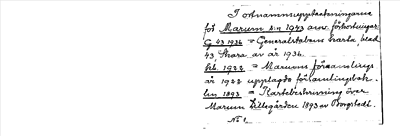 I ortnamnsuppteckningarna
för Marum s:n 1943 avse förkortningar
G 43 1936 = Generalstabens karta, blad
43, Skara av år 1936.
frb. 1922 = Marums församlings
år 1922 upplagda församlingsbok.
lm 1893 = Kartebeskrivning över
Marum Lillegården 1893 av Borgstedt.
No 1.